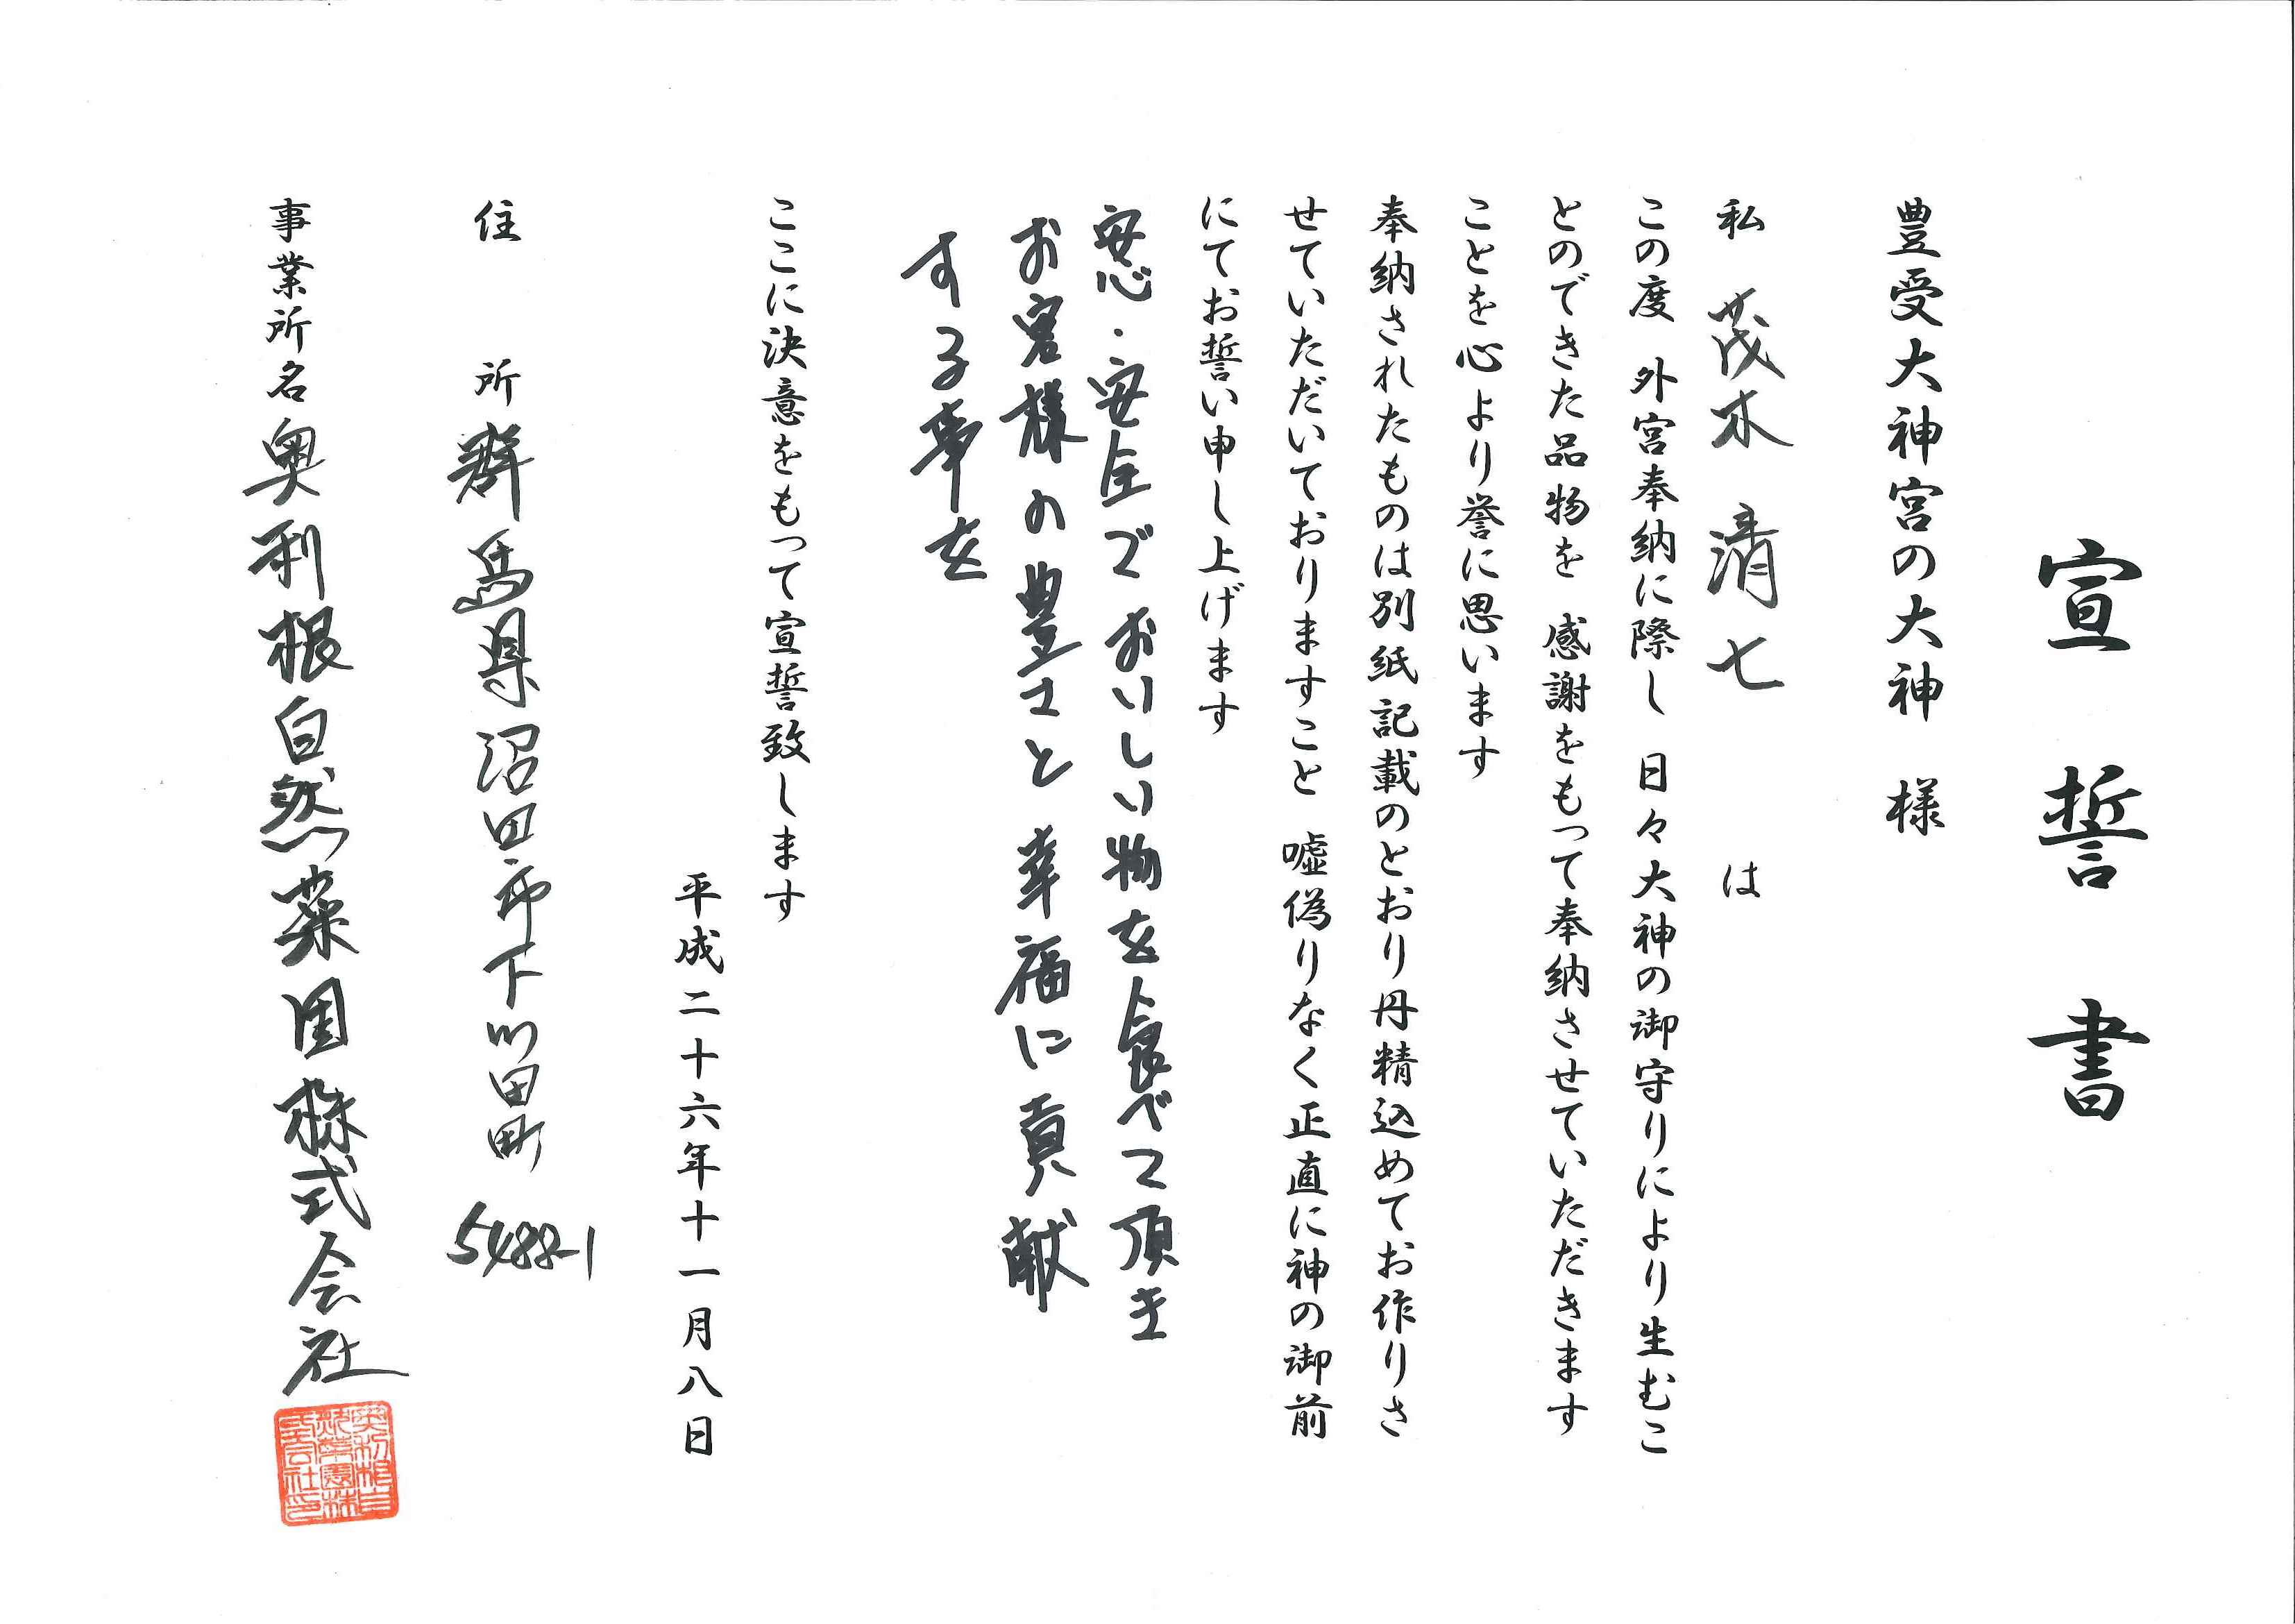 宣誓書
豊受大神宮の大神 様
私 茂木 清七 は
この度 外宮奉納に際し 日々大神の御守りにより生むこ
とのできた品物を 感謝をもって奉納させていただきます
ことを心より誉に思います
奉納されたものは別紙記載のとおり丹精込めてお作りさ
せていただいておりますこと 嘘偽りなく正直に神の御前
にてお誓い申し上げます
安心・安全でおいしい物を食べて頂き
お客様の豊さと幸福に貢献
する事を
ここに決意をもって宣誓致します
平成二十六年十一月八日
住 所 群馬県沼田市下川田町 5488-1
事業所名 奥利根自然菜園株式会社
奥利根自然菜園株式会社印